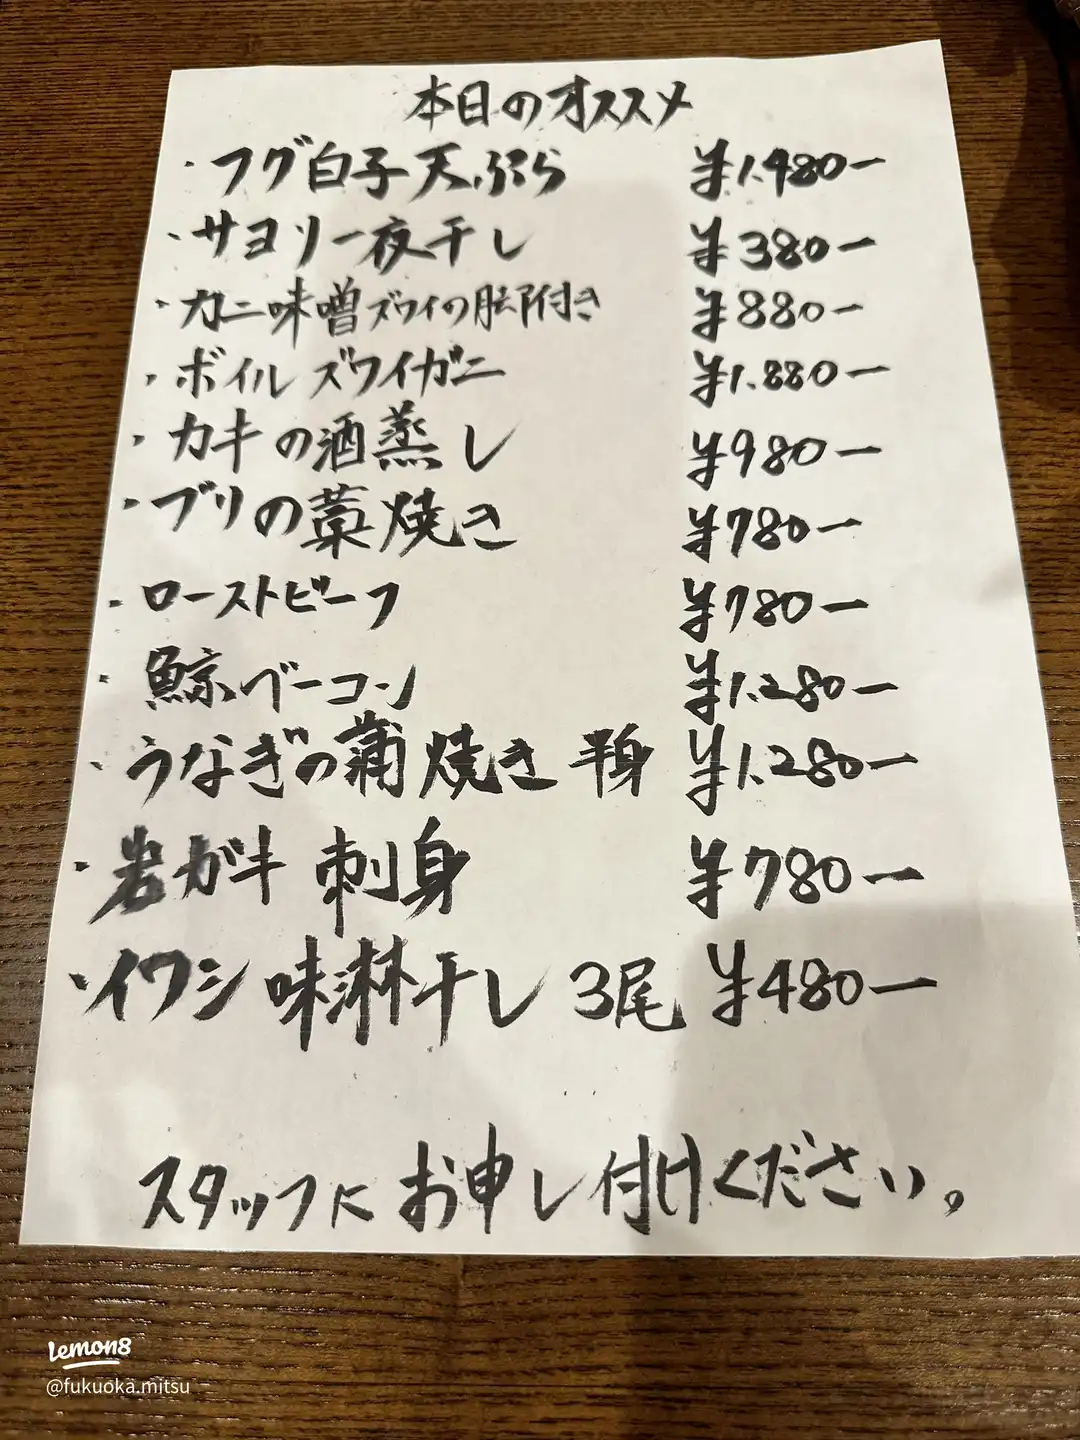 本日のオススメ
・フグ白子天ぷら ¥1,480ー
・サヨリ一夜干し ¥380ー
・カニ味噌ズワイの脚付き ¥880ー
・ボイルズワイガニ ¥1,880ー
・カキの酒蒸し ¥980ー
・ブリの藁焼き ¥780ー
・ローストビーフ ¥780ー
・鯨ベーコン ¥1,280ー
・うなぎの蒲焼き 半身 ¥1,280ー
・岩ガキ 刺身 ¥780ー
・イワシ 味淋干し 3尾 ¥480ー
スタッフにお申し付けください。
lemon8
@fukuoka.mitsu